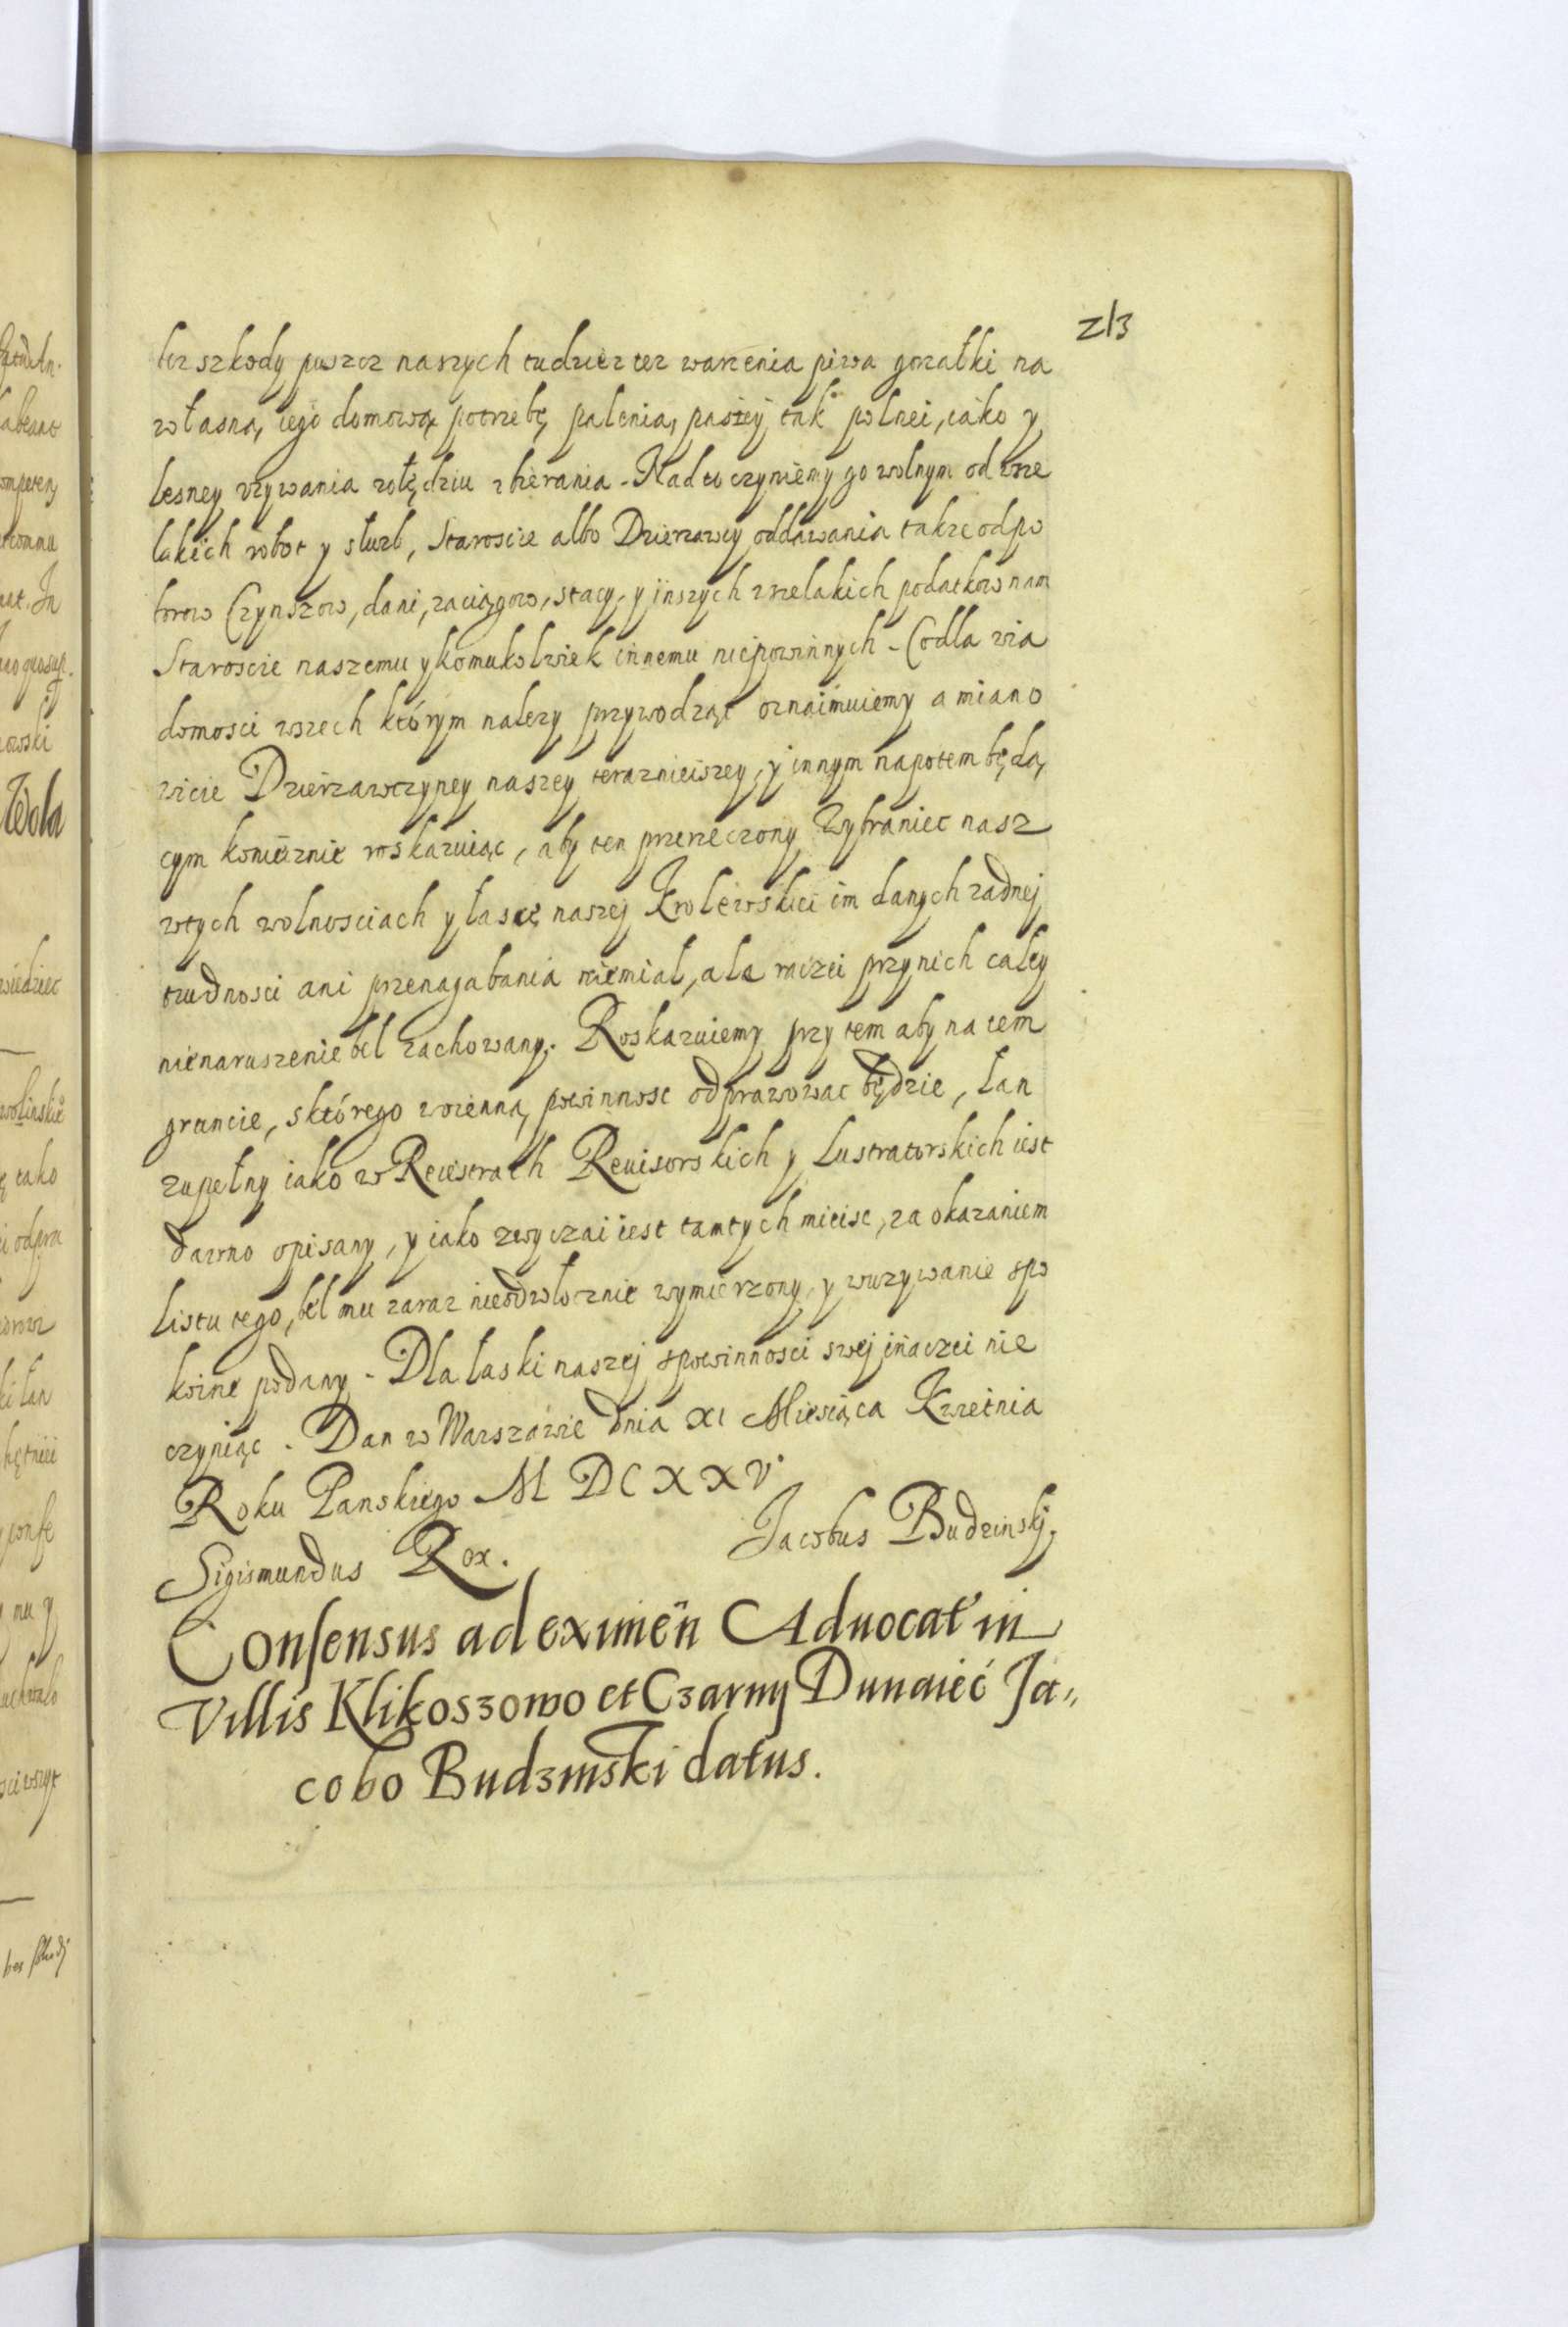 213
bez szkody puszcz naszych tudziez tez warzenia piwa gorzałki na
własną iego domową potrzebę palenia, paszej tak polnei, iako y
lesney vzywania zołędziu zbierania. Nadto czyniemy go wolnym od wsze
lakich robot y służb, Staroscie albo Dzierzawcy oddawania takze odpo
borow Czynszow, dani, zaciągow, stacy, y inszych wszelakich podatkow nam
Staroscie naszemu y komukolwiek innemu niepowinnych. Co dla wia
domosci wszech którym nalezy przywodząc oznaimuiemy a miano
wicie Dzierzawczyney naszey teraznieiszey, y innym napotem będą
cym koniecznie roskazuiąc, aby ten przerzeczony Wybraniec nasz
wtych wolnosciach y łascę naszej Krolewskiei im danych zadnej
trudnosci ani przenagabania niemiał, ale raczei przynich całey
nienaruszenie bél zachowany. Roskazuiemy przy tem aby na tem
gruncie, z którego woienną powinnosc odprawowac będzie, łan
zupełny iako w Reiestrach Reuisorskich y Lustratorskich iest
dawno opisany, y iako zwyczai iest tamtych mieisc, za okazaniem
listu tego, bél mu zaraz nieodwłocznie wymierzony, y wuzywanie spo
koine podany. Dla łaski naszej spowinnosci swej inaczei nie
czyniąc. Dan w Warszawie dnia XI Miesiąca Kwietnia
Roku Panskiego M DC XXV
Sigismundus Rex. Jacobus Budzinskj
Consensus ad eximen̄ Aduocat' in
Villis Klikoszowo et Czarny Dunaieć Ja„
cobo Budzinski datus.